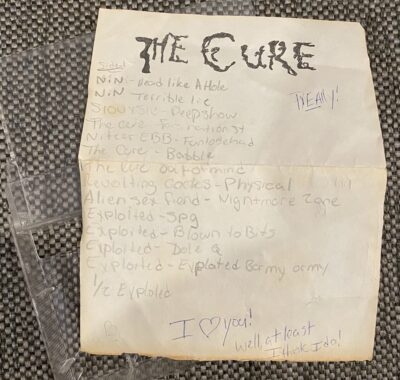 THE CURE
Side 1
NIN - Head like A Hole
NIN - Terrible lie
Siouxsie - Peepshow
TREAMy!
The Cure F
Nitzer EBB - Funlodehad
The Cure - Babble
The Cure out of mind
Revolting Cocks - Physical !!!
Alien sex fiend - Nightmare Zone
Exploited - Spg
Exploited - Blown to Bits
Exploited - Dole Q
Exploited - Exploited Barmy army
1/2 Exploited
I ♡ you!
Well at least
I think I do!